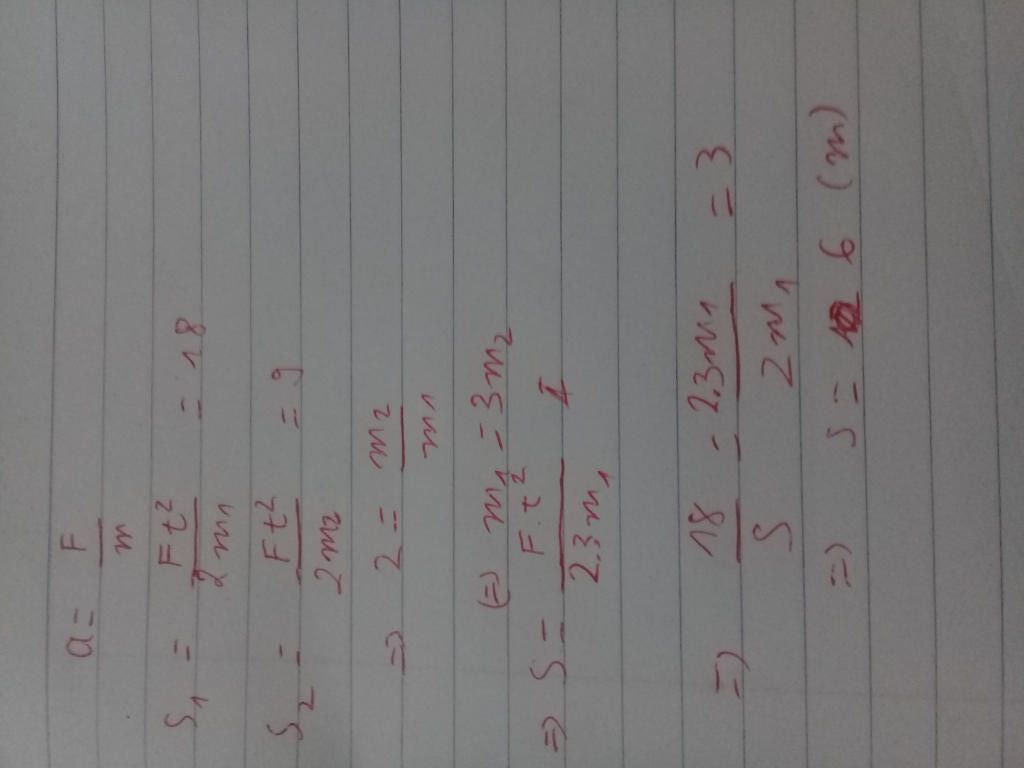 a = F/m
S₁ = Ft²/2m₁ = 18
S₂ = Ft²/2m₂ = 9
=> 2 = m₂/m₁
(=) m₁ = 3m₂
=> S = F.t²/2.3m₁
=) 18/S = 2.3m₁/2m₁ = 3
=) S = 6 (m)